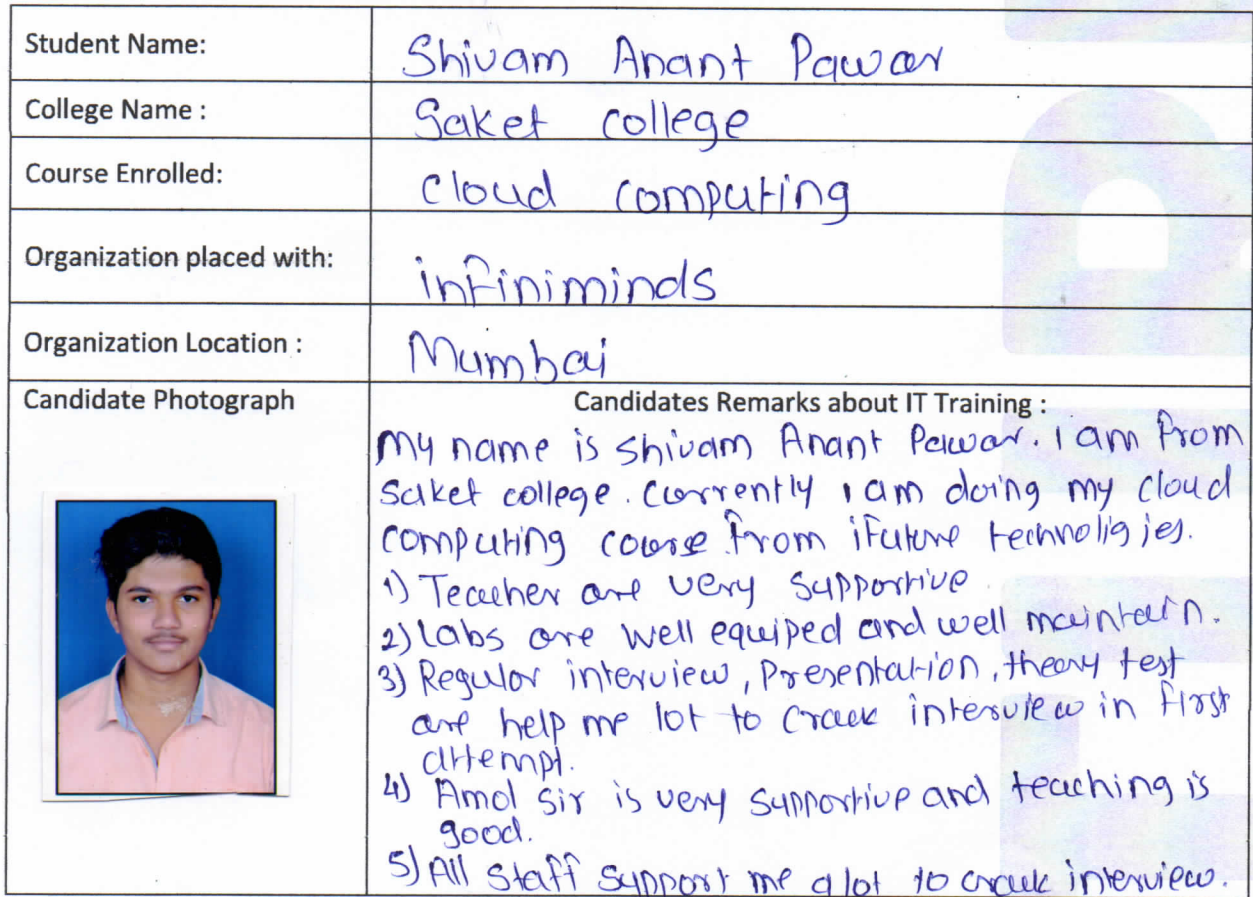 Student Name: Shivam Anant Pawar
College Name : Saket college
Course Enrolled: Cloud computing
Organization placed with: infiniminds
Organization Location : Mumbai
Candidate Photograph
Candidates Remarks about IT Training :
My name is shivam Anant Pawar. I am from
saket college. Currently I am doing my cloud
computing course from iFuture technoligies.
1) Teacher are very supportive.
2) Labs are well equiped and well maintain.
3) Regular interview, Presentation, theory test
are help me lot to crack interview in first
attempt.
4) Amol sir is very supportive and teaching is
good.
5) All staff support me a lot to crack interview.